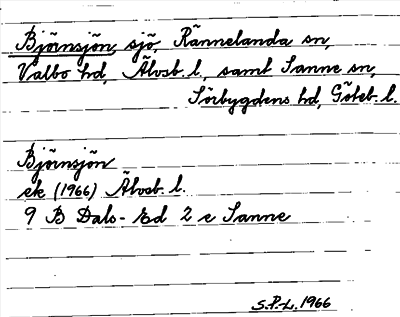 Björnsjön, sjö, Rännelanda sn,
Valbo hd, Älvsb. l., samt Sanne sn,
Sörbygdens hd, Göteb. l.
Björnsjön
ek (1966) Älvsb. l.
9 B Dals-Ed 2 e Sanne
S.P-L. 1966